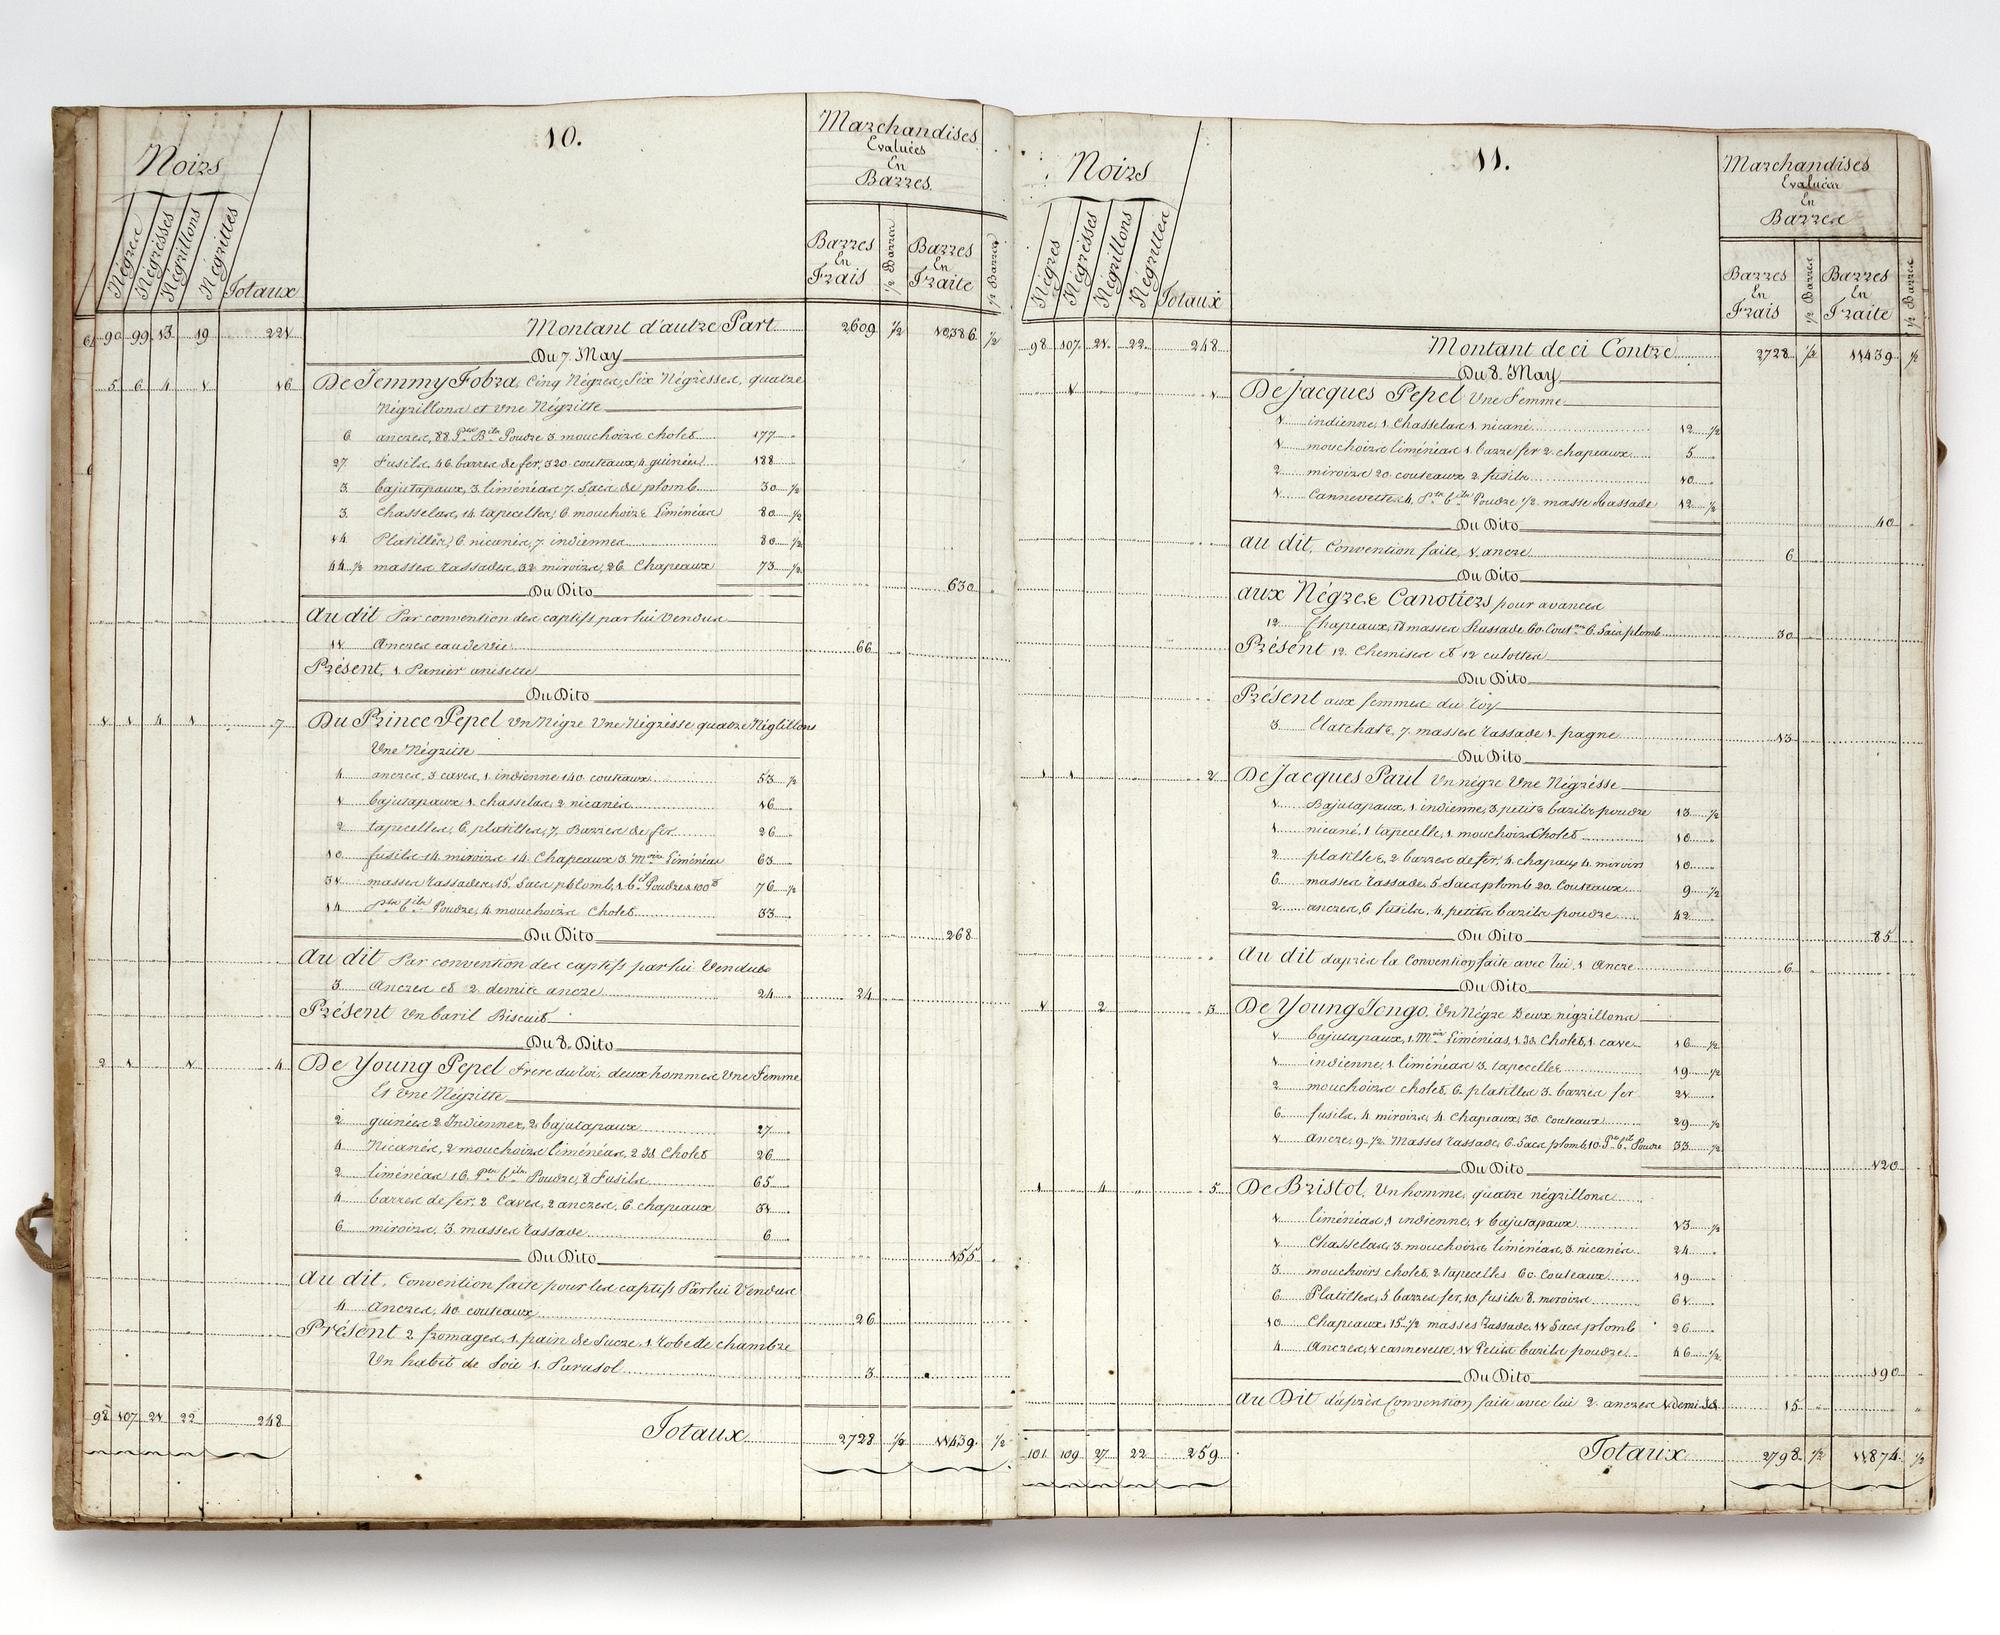 10.
Noirs
Négres
Négresses
Négrillons
Négrittes
Totaux
Marchandises
Evaluées
En
Barres.
Barres En Frais
1/2 Barres
Barres En Traite
1/2 Barres
90 99 13 19 221 Montant d'autre Part 2609 1/2 10386 1/2
Du 7. May
5 6 4 1 16 De Jemmy Fobra, Cinq Négres, Six Négresses, quatre
Négrillons et Une Négritte
6 ancres, 88 Pts Bils Poudre 3 mouchoirs cholet 177
27 Fusils, 46 barres de fer, 320 couteaux, 4 guinées 188
3 bajutapaux, 3 liménéas 7. Sacs de plomb 30 1/2
3 chasselas, 14 tapecelles, 6 mouchoirs Liménéas 80 1/2
14 Platilles, 6 nicanés, 7 indiennes 80 1/2
44 1/2 masses rassades, 32 miroirs, 26 Chapeaux 73 1/2
Du Dito 630
Au dit Par convention des captifs par lui Vendus
11 Ancres eau de vie 66
Présent, 1. Panier anisette
Du Dito
1 1 4 1 7 Du Prince Pepel Un Négre Une Négrèsse quatre Négrillons
Une Négritte
4 ancres, 3 caves, 1 indienne 140 couteaux 53 1/2
1 bajutapaux 1 chasselas, 2 nicanés 16
2 tapecelles, 6 platilles, 7, Barres de fer 26
10 fusils 14 miroirs 14 Chapeaux 3 Moirs Liménéas 63
31 masses rassades, 15 Sacs plomb, 1 bil Poudre a 100# 76 1/2
14 Pts bils Poudre, 4 mouchoirs Cholet 33
Du Dito 268
Au dit Par convention des captifs par lui Vendus
3 Ancres et 2 demie ancre 24 24
Présent Un baril Biscuit
Du 8. Dito
2 1 1 4 De Young Pepel frere du roi, deux hommes Une Femme
Et Une Négritte
2 guinées 2 Indiennes, 2 bajutapaux 27
4 Nicanés, 2 mouchoirs liménéas, 2 Is Cholet 26
2 liménéas 16 Pts bils Poudre, 8 Fusils 65
4 barres de fer, 2 Caves, 2 ancres, 6 chapeaux 31
6 miroirs, 3 masses rassade 6
Du Dito 155
Au dit, Convention faite pour les captifs Par lui Vendus
4 Ancres, 40 couteaux 26
Présent 2 fromages, 1. pain de Sucre, 1 robe de chambre
Un habit de Soie 1. Parasol 3
98 107 21 22 248 Totaux 2728 1/2 11439 1/2
11.
Noirs
Négres
Négresses
Négrillons
Négrittes
Totaux
Marchandises
Evaluées
En
Barres
Barres En Frais
1/2 Barres
Barres En Traite
1/2 Barres
98 107 21 22 248 Montant de ci Contre 2728 1/2 11439 1/2
Du 8. May
1 1 De Jacques Pepel Une Femme
1 indienne, 1 Chasselas 1 nicané 12 1/2
1 mouchoirs liménéas 1 barre fer 2 chapeaux 5
2 miroirs 20 couteaux 2 fusils 10
1 Cannevette, 4 Pts bils Poudre 1/2 masse Rassade 12 1/2
Du Dito 40
au dit, Convention faite, 1 ancre 6
Du Dito
aux Négres Canotiers pour avances
12 Chapeaux, 18 masses Rassade 60 Couteaux 6. Sacs plomb 30
Présent 12. Chemises et 12 culottes
Du Dito
Présent aux femmes du roy
3 Clatchats, 7 masses rassade 1. pagne 13
Du Dito
1 1 2 De Jacques Paul Un négre Une Négrèsse
1 Bajutapaux, 1 indienne, 3 petits barils poudre 13 1/2
1 nicané, 1 tapecelle, 1 mouchoirs Cholet 10
2 platilles, 2 barres de fer, 4 chapaux 4 miroirs 10
6 masses rassade, 5 Sacs plomb 20 Couteaux 9 1/2
2 ancres, 6 fusils, 4 petits barils poudre 42
Du Dito 85
Au dit daprès la Convention faite avec lui, 1 Ancre 6
Du Dito
1 2 3 De Young Tongo, Un Négre Deux négrillons
1 bajutapaux, 1 Moir Liménéas, 1 Is Cholet, 1 cave 16 1/2
1 indienne, 1 liménéas 3. tapecelles 19 1/2
2 mouchoirs cholet, 6 platilles 3. barres fer 21
6 fusils, 4 miroirs, 4 Chapeaux, 30 Couteaux 29 1/2
1 Ancre, 9 1/2 Masses rassade, 6. Sacs plomb, 10 Pts bils Poudre 33 1/2
Du Dito 120
1 4 5 De Bristol, Un homme, quatre négrillons
1 liménéas, 1 indienne, 1 bajutapaux 13 1/2
1 Chasselas, 3 mouchoirs liménéas, 3 nicanés 24
3 mouchoirs cholet, 2 tapecelles 60 Couteaux 19
6 Platilles, 5 barres fer, 10 fusils 8. miroirs 61
10 Chapeaux, 15 1/2 masses Rassade, 11 Sacs plomb 26
4 Ancres, 1 cannevette, 11 Petits barils poudre 46 1/2
Du Dito 190
Au Dit d'après Convention faite avec lui 2 ancres 1 demi Is 15
101 109 27 22 259 Totaux 2798 1/2 11874 1/2